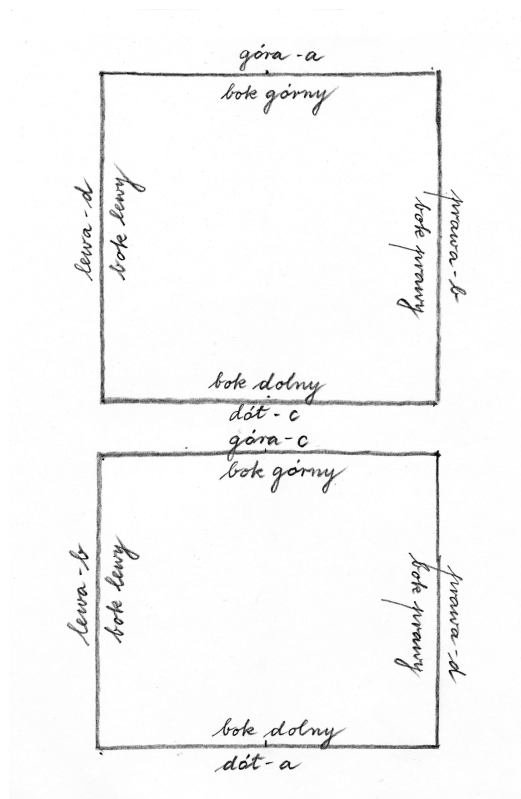 góra - a
bok górny
lewa - d
bok lewy
prawa - b
bok prawy
bok dolny
dół - c
góra - c
bok górny
lewa - b
bok lewy
prawa - d
bok prawy
bok dolny
dół - a